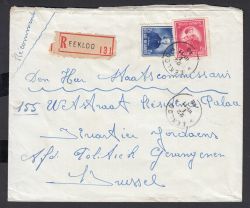 Recommandé
R EEKLOO
131
Den Heer Staatscommissaris
155 Wetstraat Residence Palace
Kwartier Jordaens
Afd. Politiek Gevangenen
Brussel